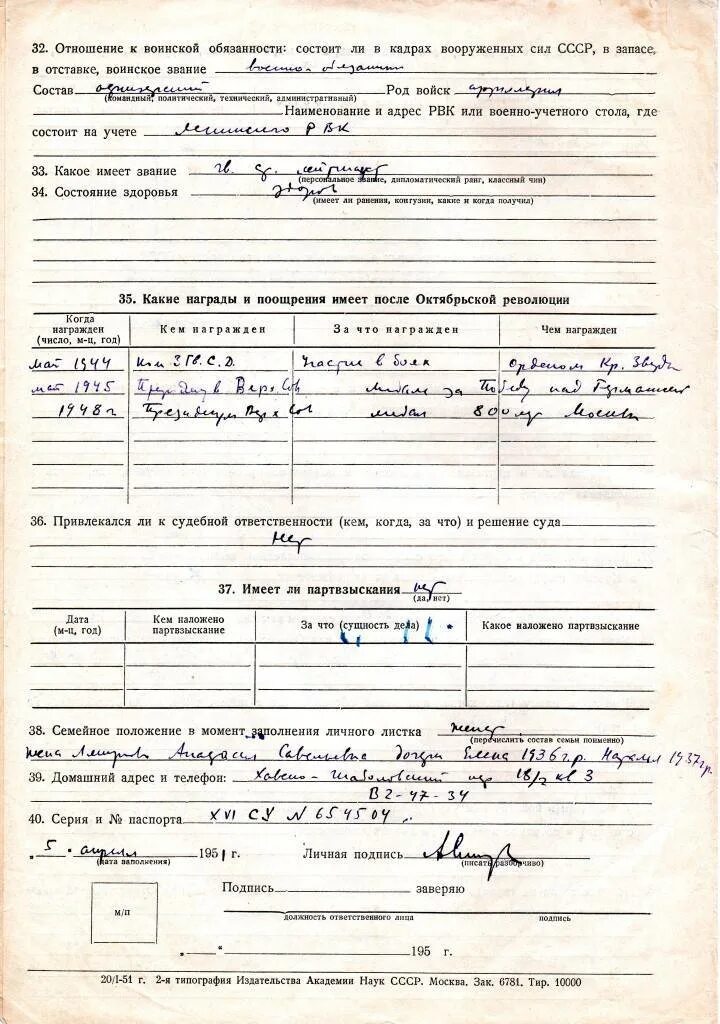 32. Отношение к воинской обязанности: состоит ли в кадрах вооруженных сил СССР, в запасе,
в отставке, воинское звание военно-обязанный
Состав офицерский Род войск артиллерия
(командный, политический, технический, административный)
Наименование и адрес РВК или военно-учетного стола, где
состоит на учете Ленинского РВК
33. Какое имеет звание гв. ст. лейтенант
(персональное звание, дипломатический ранг, классный чин)
34. Состояние здоровья здоров
(имеет ли ранения, контузии, какие и когда получил)
35. Какие награды и поощрения имеет после Октябрьской революции
Когда награжден (число, м-ц, год) Кем награжден За что награжден Чем награжден
май 1944 ком 3 Гв. С. Д. Участие в боях Орденом Кр. Звезды
май 1945 Президиум Верх Сов медаль за Победу над Германией
1948 г Президиум Верх Сов медаль 800 лет Москвы
36. Привлекался ли к судебной ответственности (кем, когда, за что) и решение суда
Нет
37. Имеет ли партвзыскания нет
(да, нет)
Дата (м-ц, год) Кем наложено партвзыскание За что (сущность дела) Какое наложено партвзыскание
38. Семейное положение в момент заполнения личного листка женат
(перечислить состав семьи поименно)
жена Савельевна дочери Елена 1936 г.р. 1937 г.р.
39. Домашний адрес и телефон: Хавско-Шаболовский пер 18/2 кв 3
В 2-47-34
40. Серия и № паспорта XVI СУ N 654504
„5“ апреля 1951 г. Личная подпись
(дата заполнения) (писать разборчиво)
Подпись заверяю
м/п
должность ответственного лица подпись
„ “ 195 г.
20/I-51 г. 2-я типография Издательства Академии Наук СССР. Москва. Зак. 6781. Тир. 10000